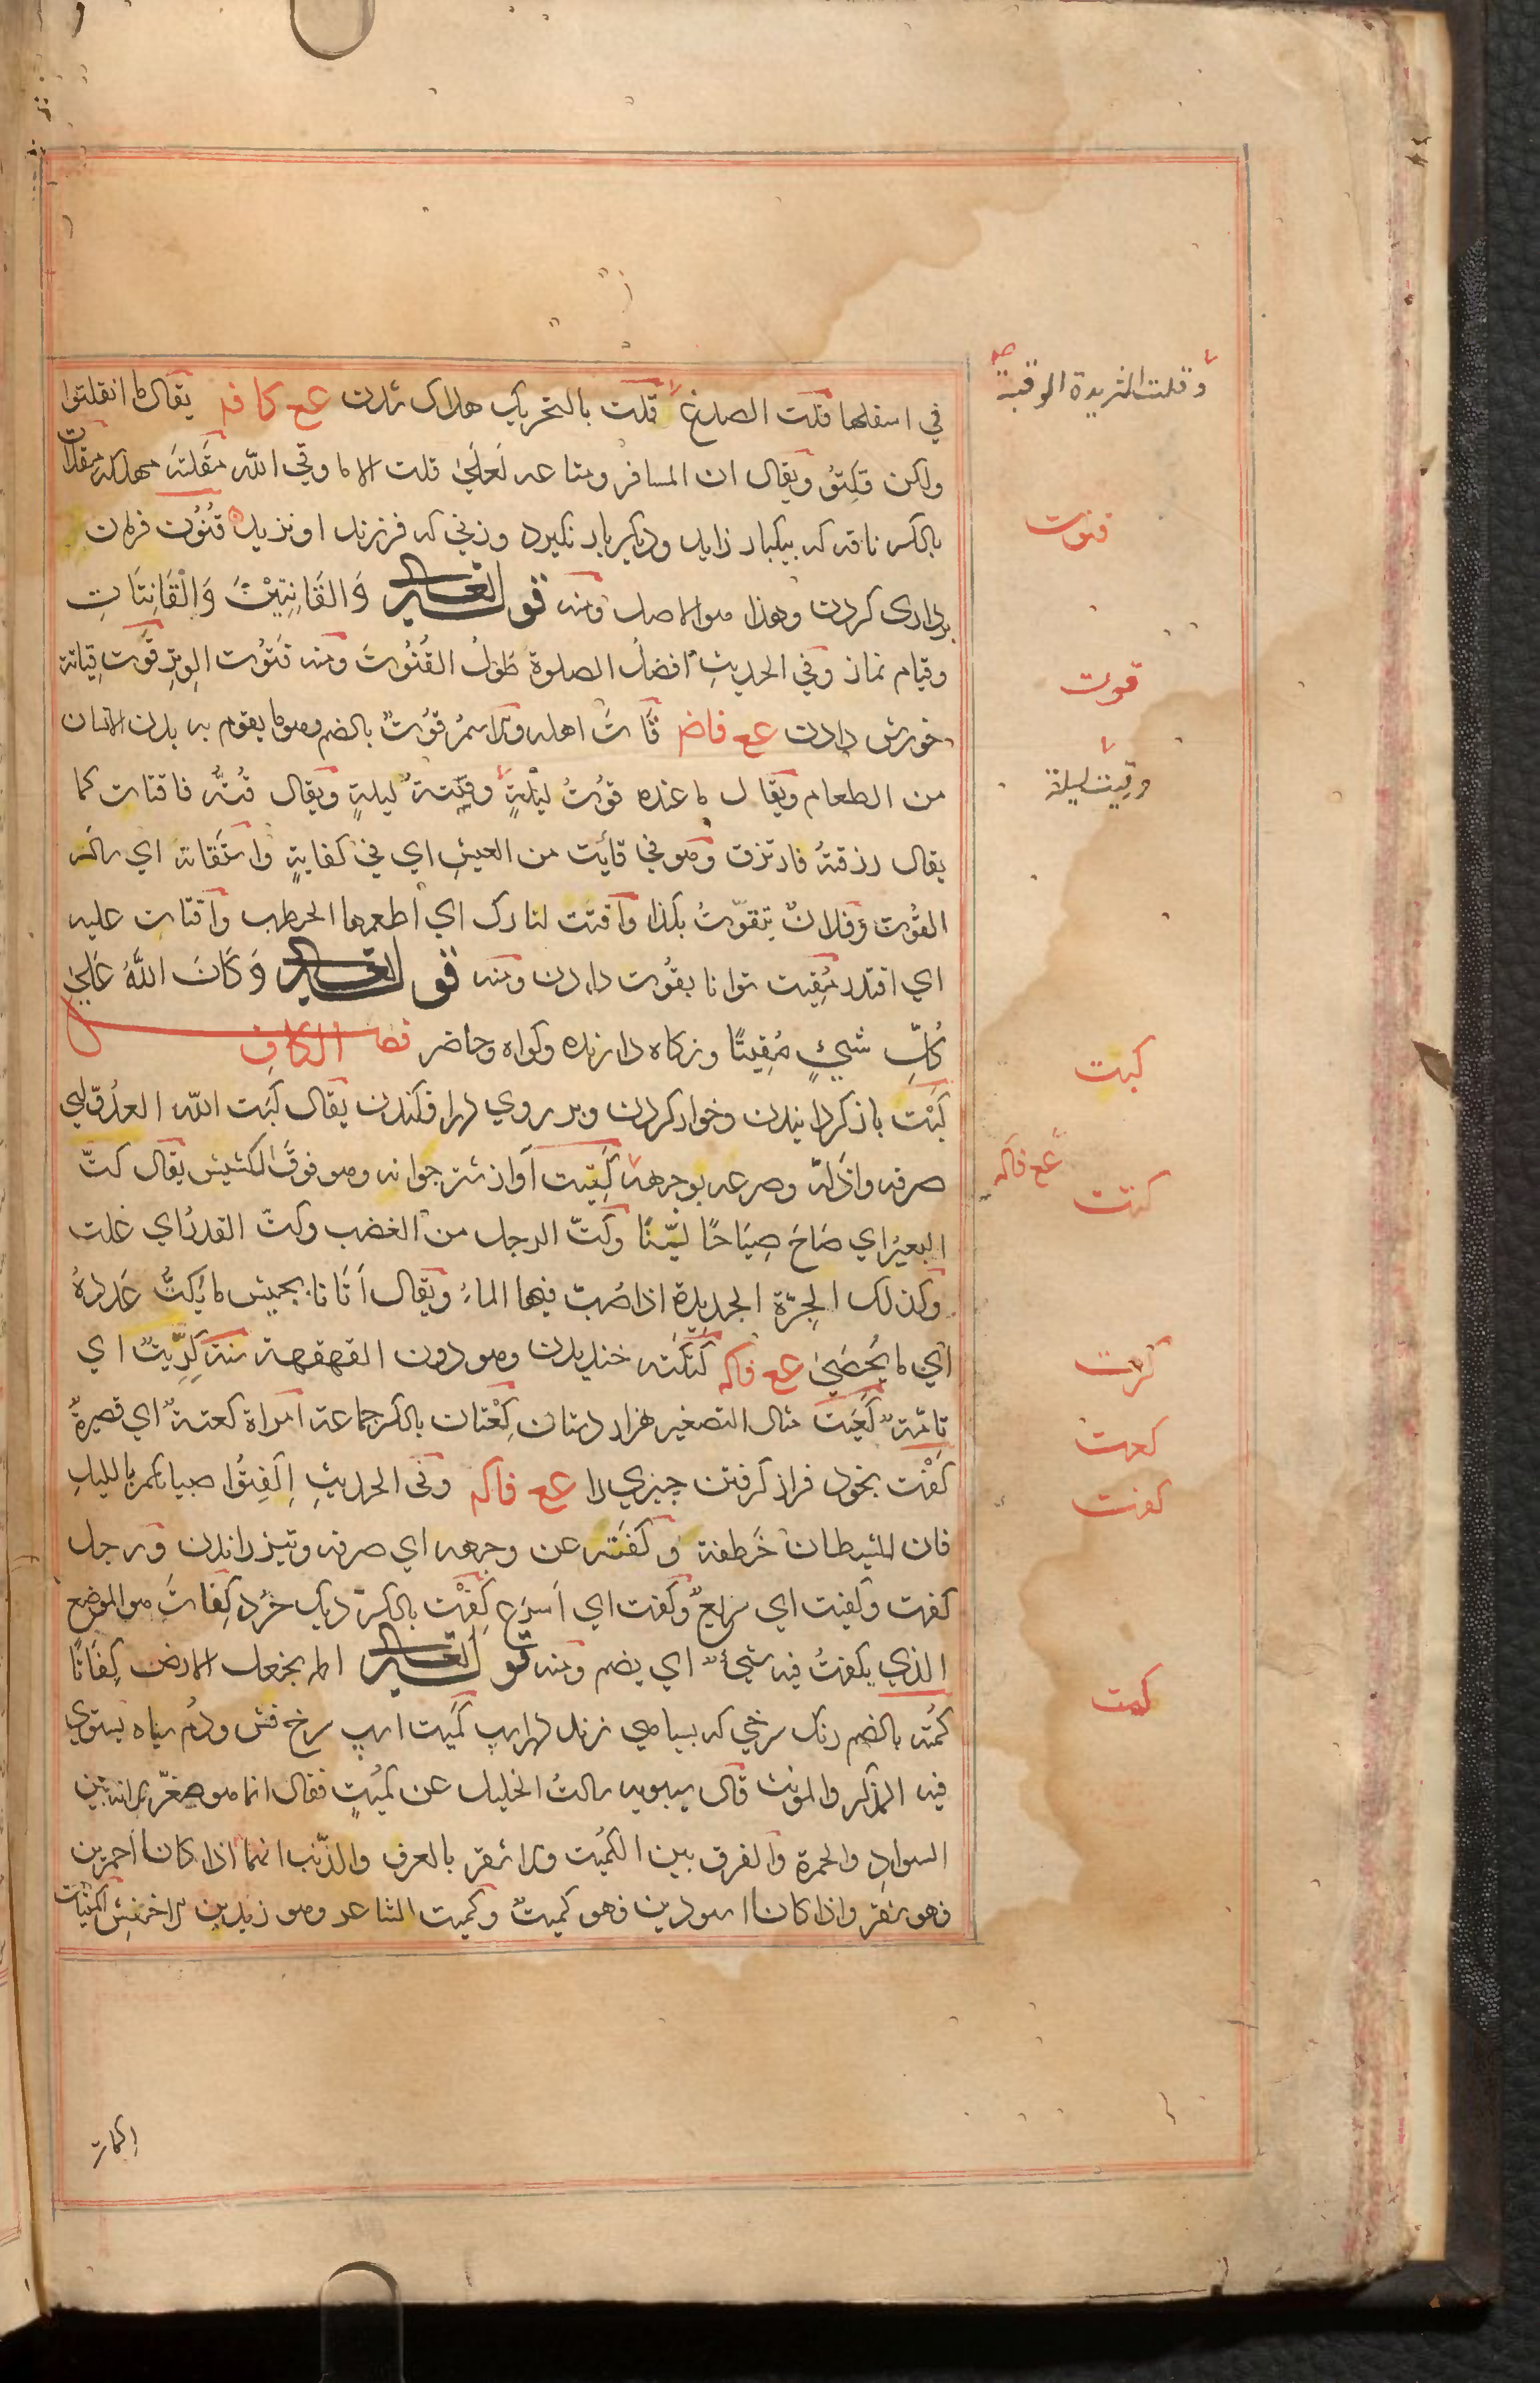 في اسفلها قلت الصدغ قلت بالتحريك هلاك شدن عع كافه يقال ما انفلتوا
ولكن قلتوا ويقال ان المسافر ومتاعه لعلى قلت الا ما وقى الله مقلتة مهلكة مقلات
بالكسر ناقه كه بيكبار زايد وديكر بار نكيرد وزنى كه فرزند او نزيد قنوت فرمان
برداری كردن وهذا هو الاصل ومنه قوله تعالى وَالقَانِتِيْنَ وَالْقَانِتَاتِ
وقيام نماز وفي الحديث افضل الصلوة طول القنوت ومنه قنوت الوتر قوت قياتة
خورش دادن عع فاض قات اهله والاسم قوت بالضم وهو ما يقوم به بدن الانسان
من الطعام ويقال ما عنده قوت ليلةٍ وقيتة ليلةٍ ويقال قُتُّه فاقتات كما
يقال رزقته فارتزق وهو في قائت من العيش اي في كفايةٍ واستقاته اي سأله
القوت وفلان يتقوت بكذا واقتت لنارك اي اطعمها الحطب واقتات عليه
اي اقتدر مُقِيت توانا بقوت دادن ومنه قوله تعالى وَكَانَ اللّٰهُ عَلىٰ
كُلِّ شَيْءٍ مُقِيتًا ونكاه دارنده وكواه وحاضر فصل الكاف
كَبْت باز كردانيدن وخوار كردن وبر روي در افكندن يقال كبت الله العدو اي
صرفه واذله وصرعه بوجهه كتيت آواز شتر جوانه وهو فوق الكشيش يقال كتّ
البعير اي صَاحَ صِيَاحًا ليّنًا وكتّ الرجل من الغضب وكتّ القدر اي غلت
وكذلك الجرّة الجديدة اذا صُبّ فيها الماء ويقال أتانا بجيش ما يُكتُّ عَدده
اي ما يُحصَىٰ عع فاكه كتكته خنديدن وهو دون القهقهة سنة كريت اي
تامّة كُعَيت مثال التصغير هزار دستان كِعْتان بالكسر جماعة امراة كعتة اي قصيرة
كَفْت بخود فراز كرفتن چيزي را عع فاكه وفى الحديث اِكْفِتُوا صبيانكم بالليل
فان للشيطان خَطفة وكَفَته عن وجهه اي صرفه وتيز راندن ورجل
كفت وكفيت اي سريع وكفت اي أسرع كِفْت بالكسر ديك خُرد كِفات هو الموضع
الذي يكفت فيه شيء اي يضم ومنه قوله تعالى الم نجعل الارض كِفَاتًا
كمته بالضم رنك سرخي كه بسياهي زند در اسب كميت اسپ سرخ فش ودُم سياه يستوي
فيه المذكر والمونث قال سيبويه سالتُ الخليل عن كميتٍ فقال انما هو صغّر لانه بين
السواد والحمرة والفرق بين الكميت والاشقر بالعرف والذنب انهما اذا كانا احمرين
فهو اشقر واذا كانا اسودين فهو كميت وكميت الشاعر وهو زيد بن الاخنس الكميات
وقلت الثريدة الوقبة
قنوت
قوت
وقيت ليلة
كبت
عع فاكه
كتت
كرت
كعت
كفت
كمت